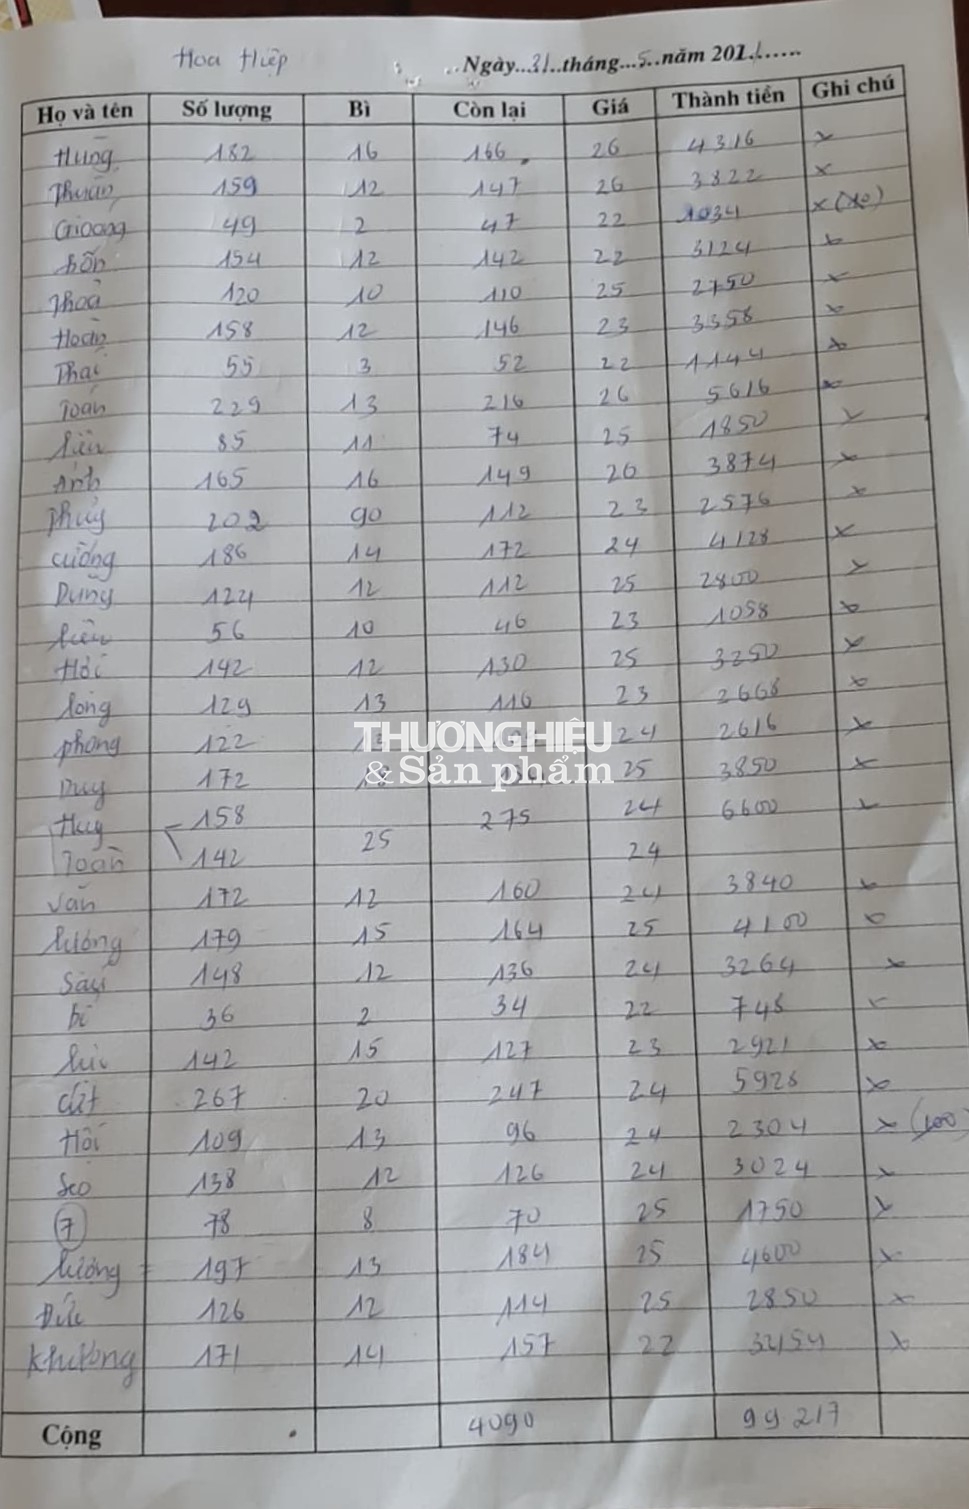 Hoa Hiệp
Ngày 31 tháng 5 năm 201
Họ và tên Số lượng Bì Còn lại Giá Thành tiền Ghi chú
Hùng 182 16 166 26 4316 x
Thuận 159 12 147 26 3822 x
Gioong 49 2 47 22 1034 x
bốn 154 12 142 22 3124 x
Thoả 120 10 110 25 2750 x
Hoàn 158 12 146 23 3358 x
Thai 55 3 52 22 1144 x
Toán 229 13 216 26 5616 x
liên 85 11 74 25 1850 x
Ánh 165 16 149 26 3874 x
Thuỷ 202 90 112 23 2576 x
cường 186 14 172 24 4128 x
Dũng 124 12 112 25 2800 x
liên 56 10 46 23 1058 x
Hải 142 12 130 25 3250 x
long 129 13 116 23 2668 x
phong 122 24 2616 x
Duy 172 25 3850 x
Huy 158 25 275 24 6600 x
Toàn 142 24
Văn 172 12 160 24 3840 x
lương 179 15 164 25 4100 x
Sáu 148 12 136 24 3264 x
bé 36 2 34 22 748
142 15 127 23 2921 x
cát 267 20 247 24 5928 x
Hội 109 13 96 24 2304 x (100)
Seo 138 12 126 24 3024 x
7 78 8 70 25 1750 x
lương 197 13 184 25 4600 x
Đức 126 12 114 25 2850 x
Khương 171 14 157 22 3454 x
Cộng 4090 99 217
THƯƠNG HIỆU
& Sản phẩm